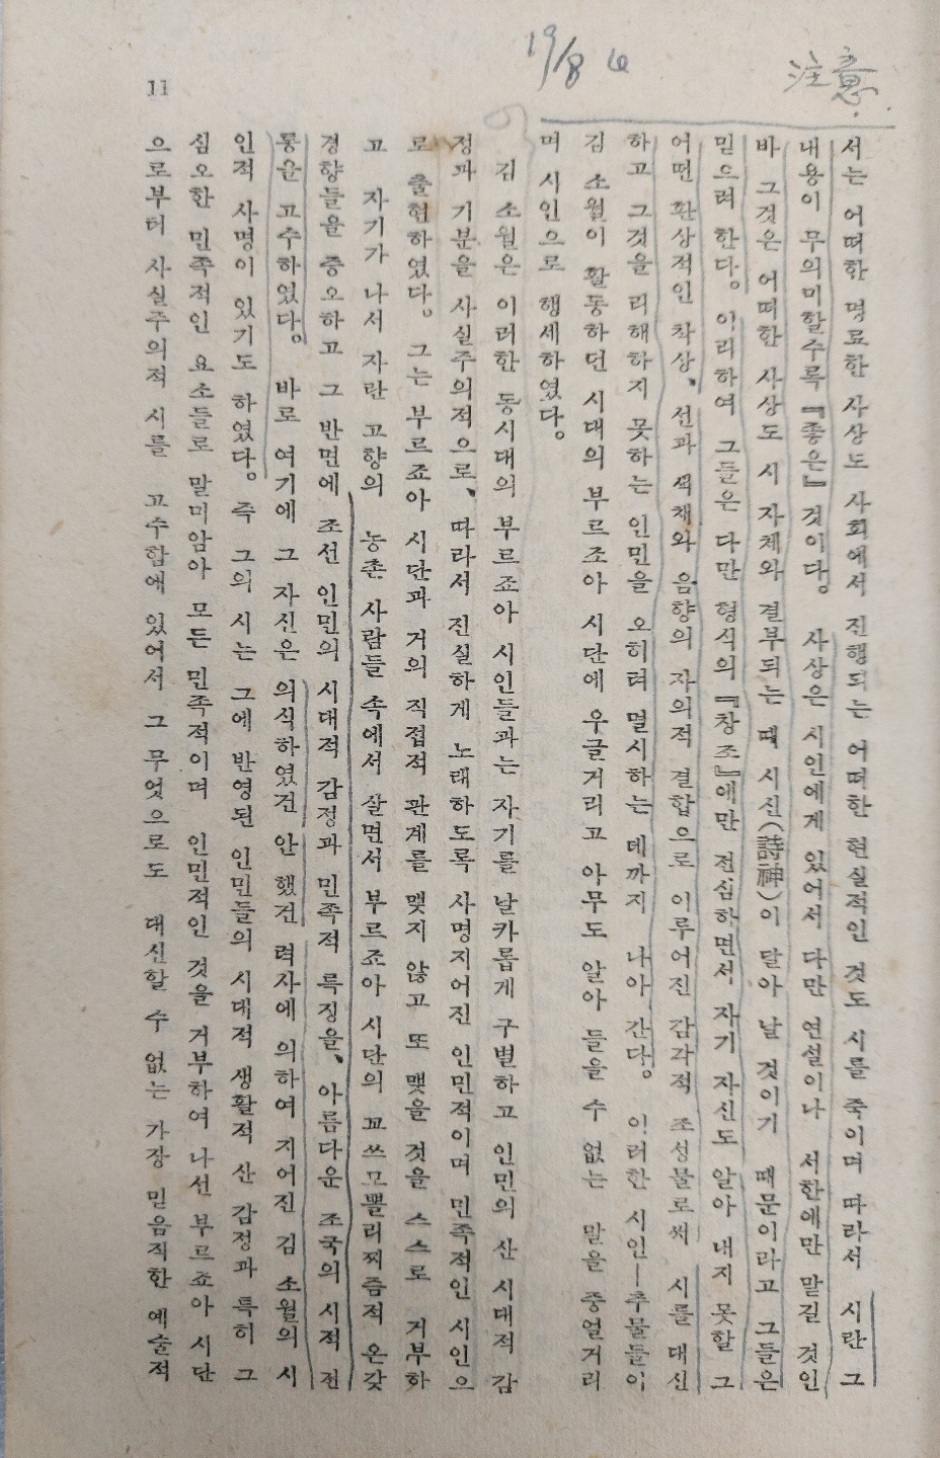 注意
19/8 6
서는 어떠한 명료한 사상도 사회에서 진행되는 어떠한 현실적인 것도 시를 죽이며 따라서 시란 그
내용이 무의미할수록 『좋은』 것이다. 사상은 시인에게 있어서 다만 연설이나 서한에만 맡길 것인
바 그것은 어떠한 사상도 시 자체와 결부되는 때 시신(詩神)이 달아 날 것이기 때문이라고 그들은
믿으려 한다. 이리하여 그들은 다만 형식의 『창조』에만 전심하면서 자기 자신도 알아 내지 못할 그
어떤 환상적인 착상、 선과 색채와 음향의 자의적 결합으로 이루어진 감각적 조성물로써 시를 대신
하고 그것을 리해하지 못하는 인민을 오히려 멸시하는 데까지 나아 간다. 이러한 시인—추물들이
김 소월이 활동하던 시대의 부르죠아 시단에 우글거리고 아무도 알아 들을 수 없는 말을 중얼거리
며 시인으로 행세하였다.
김 소월은 이러한 동시대의 부르죠아 시인들과는 자기를 날카롭게 구별하고 인민의 산 시대적 감
정과 기분을 사실주의적으로、 따라서 진실하게 노래하도록 사명지어진 인민적이며 민족적인 시인으
로 출현하였다. 그는 부르죠아 시단과 거의 직접적 관계를 맺지 않고 또 맺을 것을 스스로 거부하
고 자기가 나서 자란 고향의 농촌 사람들 속에서 살면서 부르죠아 시단의 꼬쓰모뽈리찌즘적 온갖
경향들을 증오하고 그 반면에 조선 인민의 시대적 감정과 민족적 특징을、 아름다운 조국의 시적 전
통을 고수하였다. 바로 여기에 그 자신은 의식하였건 안 했건 력사에 의하여 지어진 김 소월의 시
인적 사명이 있기도 하였다. 즉 그의 시는 그에 반영된 인민들의 시대적 생활적 산 감정과 특히 그
심오한 민족적인 요소들로 말미암아 모든 민족적이며 인민적인 것을 거부하여 나선 부르죠아 시단
으로부터 사실주의적 시를 고수함에 있어서 그 무엇으로도 대신할 수 없는 가장 믿음직한 예술적
11